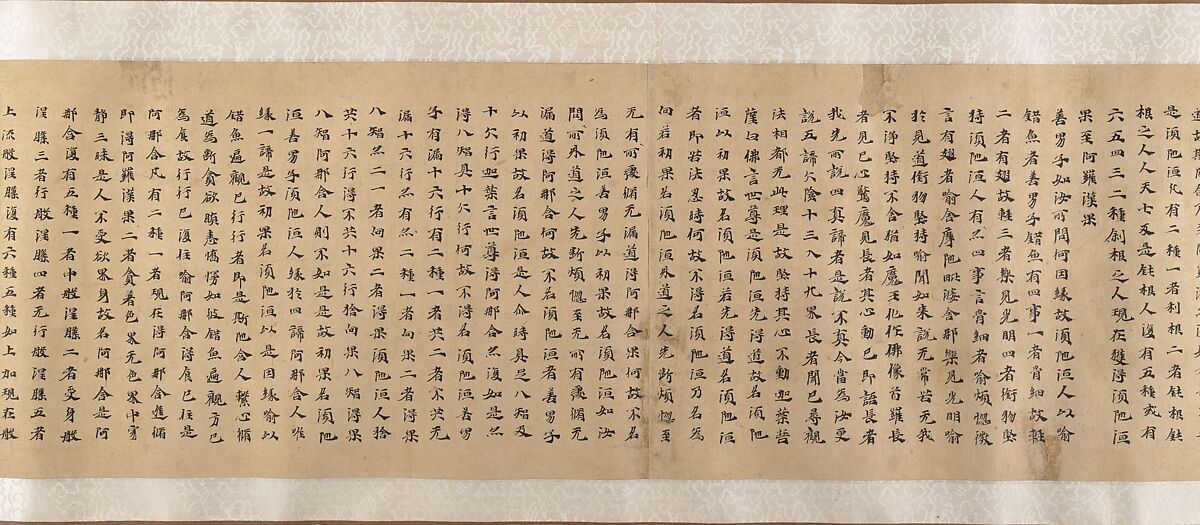 是須陁洹凡有二種一者利根二者鈍根鈍
根之人人天七反是鈍根人復有五種或有
六五四三二種利根之人現在獲得須陁洹
果至阿羅漢果
善男子如汝所問何因緣故須陁洹人以喻
錯魚者善男子錯魚有四事一者骨細故輕
二者有翅故輕三者樂見光明四者銜物堅
持須陁洹人有亦四事言骨細者喻煩惱微
言有翅者喻舍摩陁毗婆舍那樂見光明喻
於見道銜物堅持喻聞如來說无常苦无我
不淨堅持不舍猶如魔王化作佛像首羅長
者見已心驚魔見長者其心動已即語長者
我先所說四真諦者是說不真今當為汝更
說五諦六陰十三入十九界長者聞已尋觀
法相都无此理是故堅持其心不動迦葉菩
薩白佛言世尊是須陁洹先得道故名須陁
洹以初果故名須陁洹若先得道名須陁洹
者即苦法忍時何故不得名須陁洹乃名為
向若初果名須陁洹外道之人先斷煩惱至
无有所處脩无漏道得阿那含果何故不名
為須陁洹善男子以初果故名須陁洹如汝
問所外道之人先斷煩惱至无所有處脩无
漏道得阿那含何故不名須陁洹者善男子
以初果故名須陁洹是人尒時具足八智及
十六行迦葉言世尊得阿那含亦復如是亦
得八智具十六行何故不得名須陁洹善男
子有漏十六行有二種一者共二者不共无
漏十六行亦有亦二種一者向果二者得果
八智亦二一者向果二者得果須陁洹人捨
共十六行得不共十六行捨向果八智得果
八智阿那含人則不如是是故初果名須陁
洹善男子須陁洹人緣於四諦阿那含人唯
緣一諦是故初果名須陁洹以是因緣喻以
錯魚遍觀已行行者即是斯陁含人繫心脩
道為斷貪欲瞋恚愚癡如彼錯魚遍觀方已
為食故行行已復住喻阿那含得食已住是
阿那含凡有二種一者現在得阿那含進脩
即得阿羅漢果二者貪著色界无色界中寂
靜三昧是人不受欲界身故名阿那含是阿
那含復有五種一者中般涅槃二者受身般
涅槃三者行般涅槃四者无行般涅槃五者
上流般涅槃復有六種五種如上加現在般